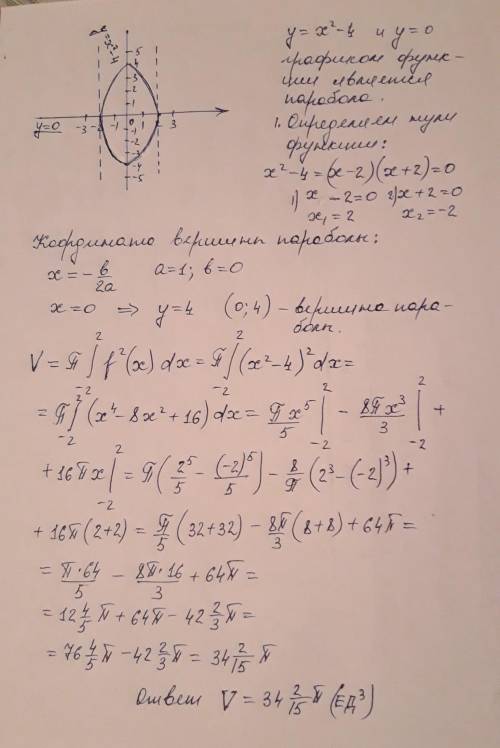 y = x²-4
5
4
3
2
1
y=0
-3 -2 -1 0 1 2 3
-1
-2
-3
-4
-5
y = x²-4 и y=0
графиком функ-
ции является
парабола.
1. Определяем нули
функции:
x²-4=(x-2)(x+2)=0
1) x-2=0 2) x+2=0
x₁=2 x₂=-2
Координата вершины параболы:
x = -b/2a a=1; b=0
x=0 ⇒ y=4 (0;4) - вершина пара-
болы.
V = π∫₋₂² f²(x) dx = π∫₋₂² (x²-4)² dx =
= π∫₋₂² (x⁴-8x²+16) dx = πx⁵/5 |₋₂² - 8πx³/3 |₋₂² +
+ 16πx |₋₂² = π(2⁵/5 - (-2)⁵/5) - 8/π (2³-(-2)³) +
+ 16π(2+2) = π/5 (32+32) - 8π/3 (8+8) + 64π =
= π*64/5 - 8π*16/3 + 64π =
= 12 4/5 π + 64π - 42 2/3 π =
= 76 4/5 π - 42 2/3 π = 34 2/15 π
Ответ V = 34 2/15 π (ЕД³)